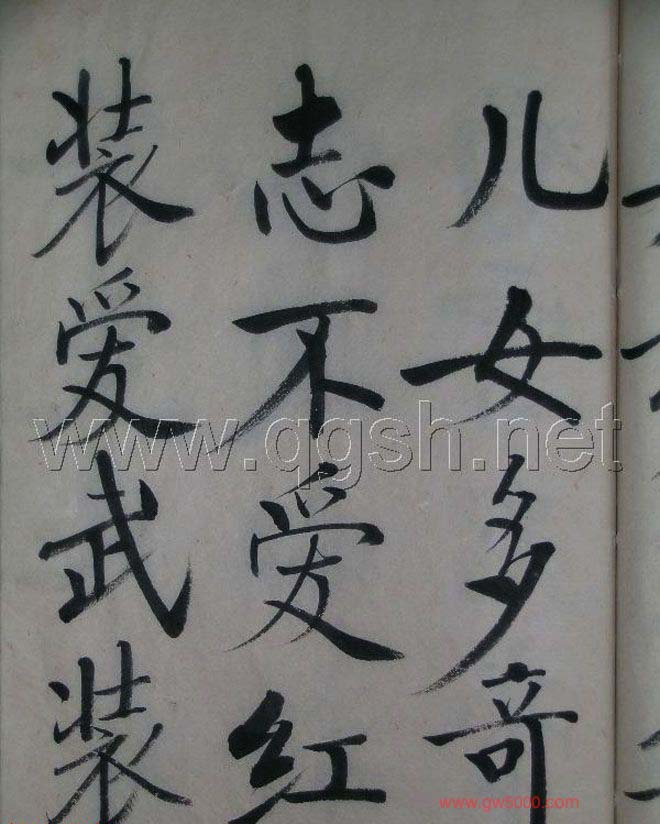 儿女多奇
志不爱红
装爱武装
www.qgsh.net
www.gw5000.com